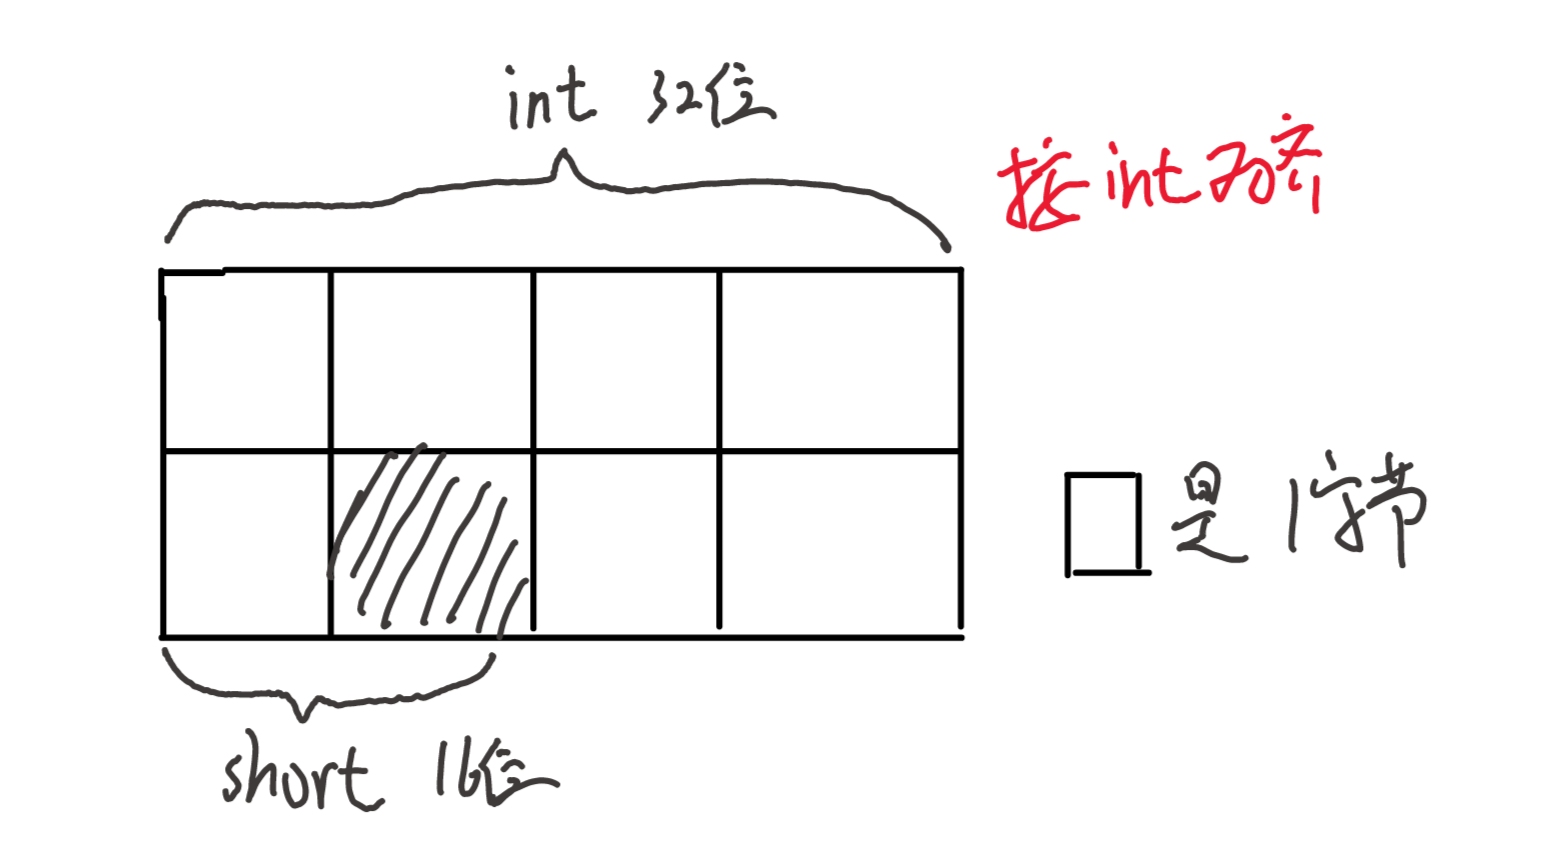 int 32位
按int对齐
是 1字节
short 16位